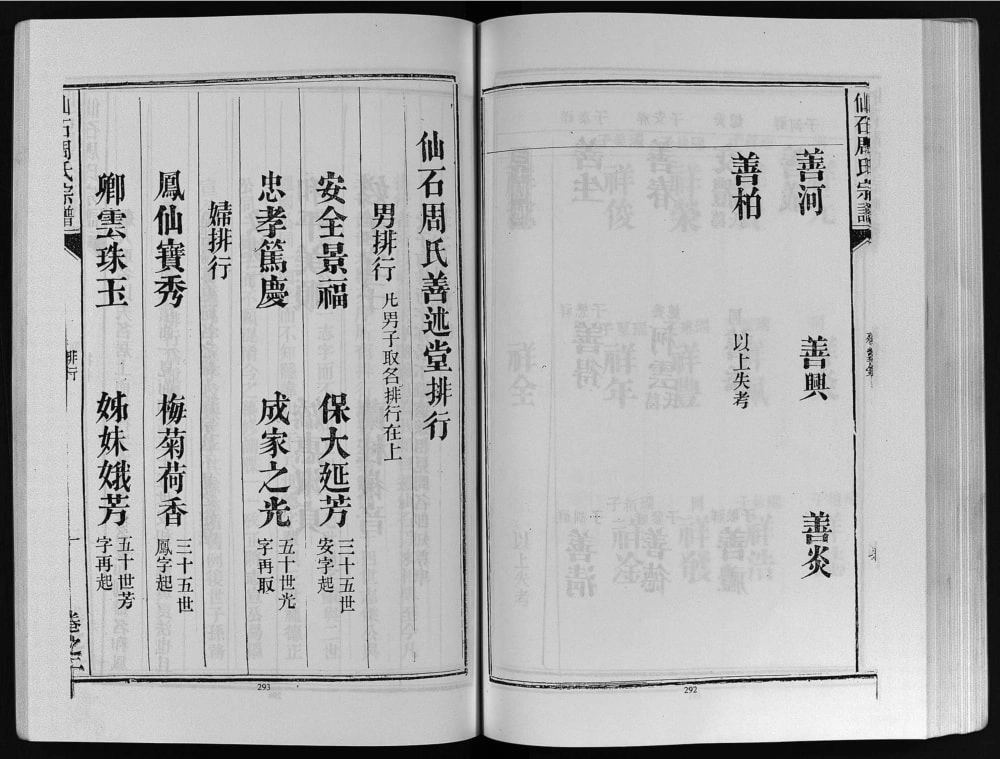 仙石周氏宗譜
善河 善興 善炎
善柏 以上失考
292
仙石周氏善述堂排行
男排行 凡男子取名排行在上
安全景福 保大延芳 三十五世安字起
忠孝篤慶 成家之光 五十世光字再取
婦排行
鳳仙寶秀 梅菊荷香 三十五世鳳字起
卿雲珠玉 姊妹娥芳 五十世芳字再起
仙石周氏宗譜
排行
卷之二
293